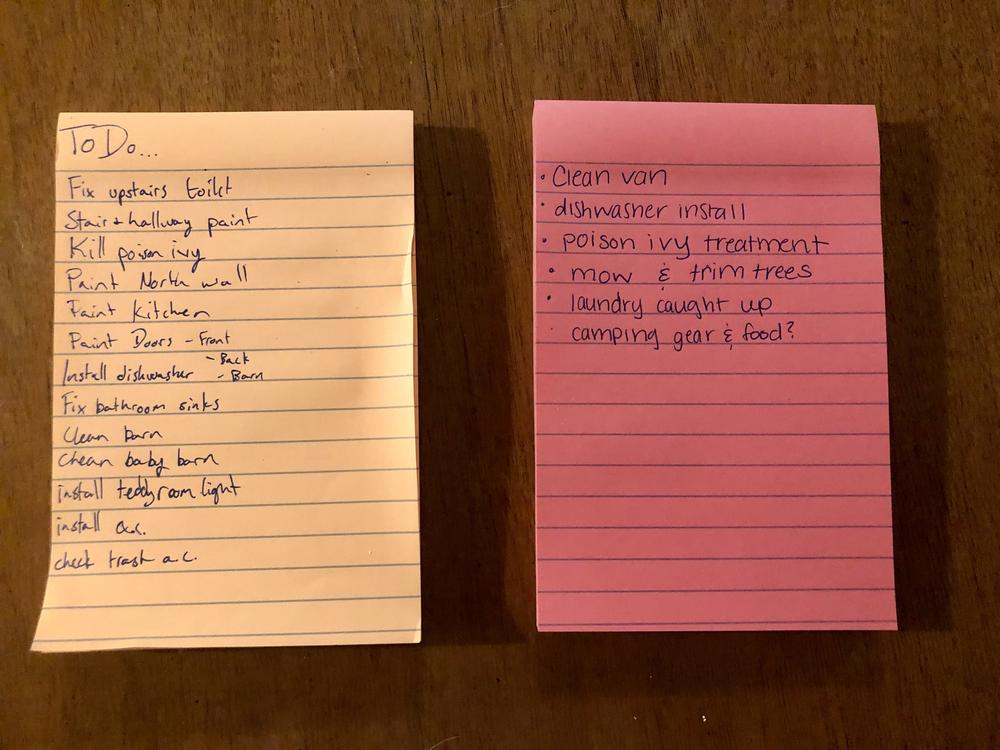 To Do...
Fix upstairs toilet
Stair + hallway paint
Kill poison ivy
Paint North wall
Paint Kitchen
Paint Doors - Front
- Back
Install dishwasher - Barn
Fix bathroom sinks
Clean barn
Clean baby barn
install teddy room light
install a.c.
check trash a.c.
• Clean van
• dishwasher install
• poison ivy treatment
• mow & trim trees
• laundry caught up
• camping gear & food?